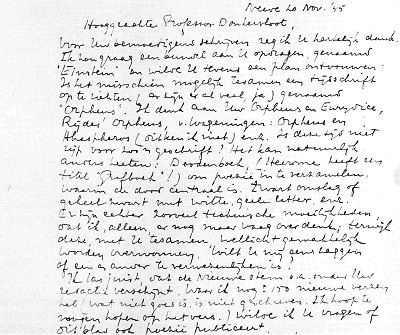 Meeuwe 20 Nov. '45
Hooggeachte Professor Donkersloot,
Voor Uw bemoedigend schrijven zeg ik U hartelijk dank.
Ik zou graag een bundel aan U opdragen, genaamd
"Einstein" en wilde U tevens een plan ontvouwen:
Is het misschien mogelijk tesamen een tijdschrift
op te richten, (er zijn er al veel, ja,) genaamd
"Orpheus". Ik denk aan Uw Orpheus en Eurydice,
Orpheus, v. Wageningen: Orpheus en
Ahasveros (dit ken ik niet) enz. Is deze tijd niet
rijp voor zoo'n geschrift? Het kan natuurlijk
anders heeten: Doodenboek, (! Heeroma heeft een
titel ) om poësie in te verzamelen,
waarin de dood centraal is. Zwart omslag of
geheel zwart met witte, gele letter, enz.
Er zijn echter zooveel technische moeilijkheden,
dat ik, alleen, er nog maar vaag over denk; terwijl
deze, met U tesamen, wellicht gemakkelijk
worden overwonnen. Wilt U mij eens zeggen
of een en ander te verwezenlijken is?
Ik las juist, dat de Nieuwe Stem o.a. onder Uw
redactie verschijnt. Waar ik nog ± 150 nieuwe verzen
heb (wat niet goed is, is niet geschreven. Ik hoop te
mogen hopen op het vers.) wilde ik U vragen of
dit blad ook poësie publiceert.